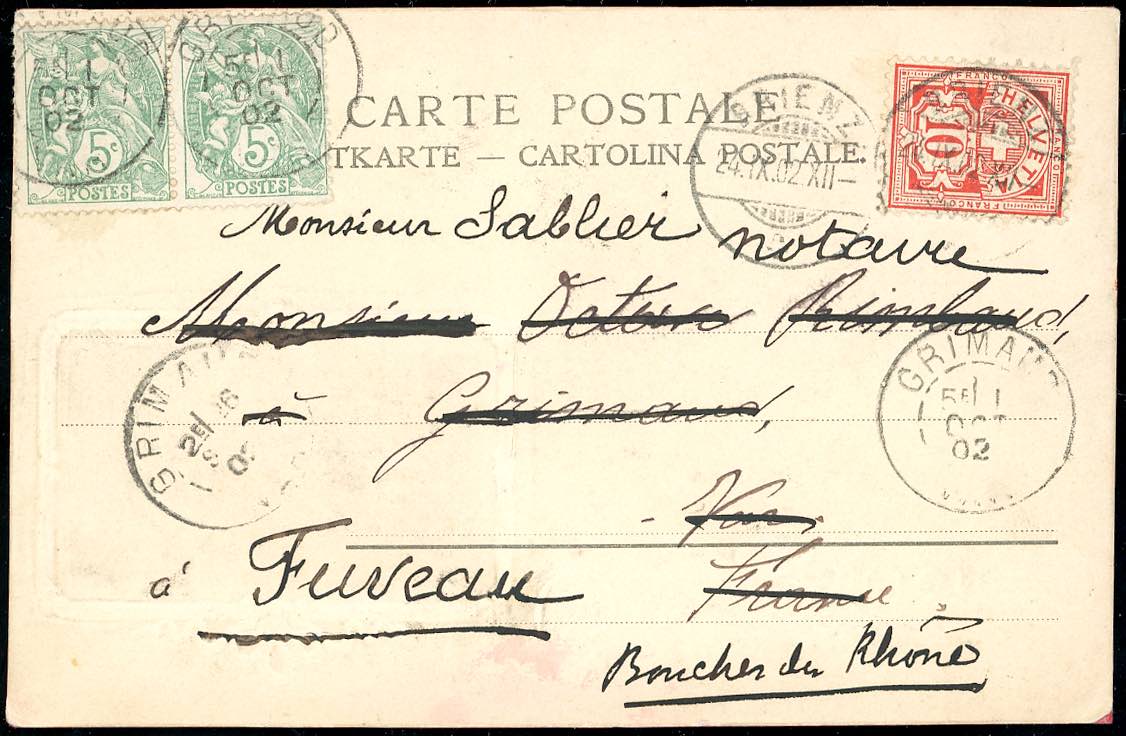 CARTE POSTALE
TKARTE — CARTOLINA POSTALE.
5E 1
OCT
02
5c
POSTES
5E 1
OCT
02
5c
POSTES
BRIENZ
24.IX.02.XII—
FRANCO
HELVETIA
10
FRANCO
Monsieur Sablier notaire
Monsieur Octave Rimbaud,
à Grimaud,
Var.
France
à Fuveau
Bouches du Rhône
GRIMAUD
02
GRIMAUD
5E 1
OCT
02